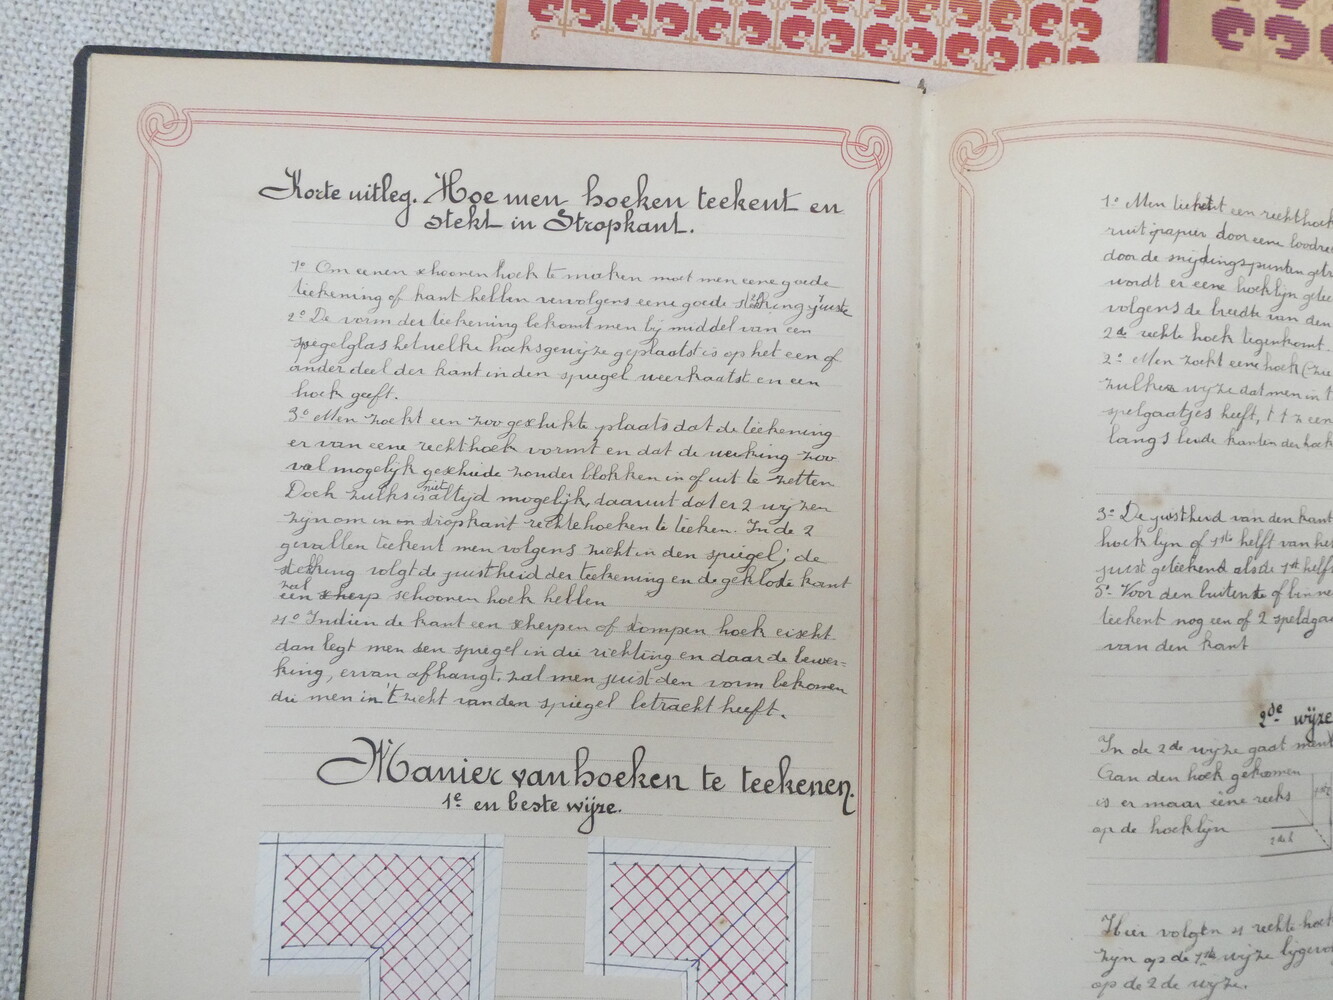 Korte uitleg. Hoe men hoeken teekent en
stekt in Stropkant.
1º Om eenen schoonen hoek te maken moet men eene goede
teekening of kant hebben vervolgens eene goede stekking juiste
2º De vorm der teekening bekomt men bij middel van een
spegelglas hetwelke hoeksgewijze geplaatst is op het een of
ander deel der kant in den spiegel weerkaatst en een
hoek geeft.
3º Men zoekt een zoo geschikte plaats dat de teekening
er van eene rechthoek vormt en dat de werking zoo
veel mogelijk geschiede zonder blokken in of uit te zetten
Doch zulks is niet altijd mogelijk, daaruit dat er 2 wijzen
zijn om in en stropkant rechte hoeken te teeken. In de 2
gevallen teekent men volgens zicht in den spiegel; de
stekking volgt de juistheid der teekening en de geklosde kant
zal
een scherp schoonen hoek hebben
4º Indien de kant een scherpen of stompen hoek eischt
dan legt men den spiegel in die richting en daar de bewer=
king, ervan afhangt, zal men juist den vorm bekomen
die men in 't zicht van den spiegel betracht heeft.
Manier van hoeken te teekenen.
1e en beste wijze.
1º Men teekent een rechthoek
ruitpapier door eene loodre
door de snijdingspunten getr
wordt er eene hoeklijn gete
volgens de breedte van den
2de rechte hoek tegenkomt.
2º Men zoekt eene hoek (zie
zulken wijze dat men in t
speldgaatjes heeft, een
langs beide kanten der hoek
3º De juistheid van den kant
hoeklijn of 1ste helft van het
juist geteekend als de 1ste helft
5º Voor den buitenste of binne
teekent nog een of 2 speldgaa
van den kant
2de wijze
In de 2de wijze gaat men
Aan den hoek gekomen
is er maar eene reeks
op de hoeklijn
Hier volgen 4 rechte hoek
zijn op de 1ste wijze bijgevo
op de 2de wijze.